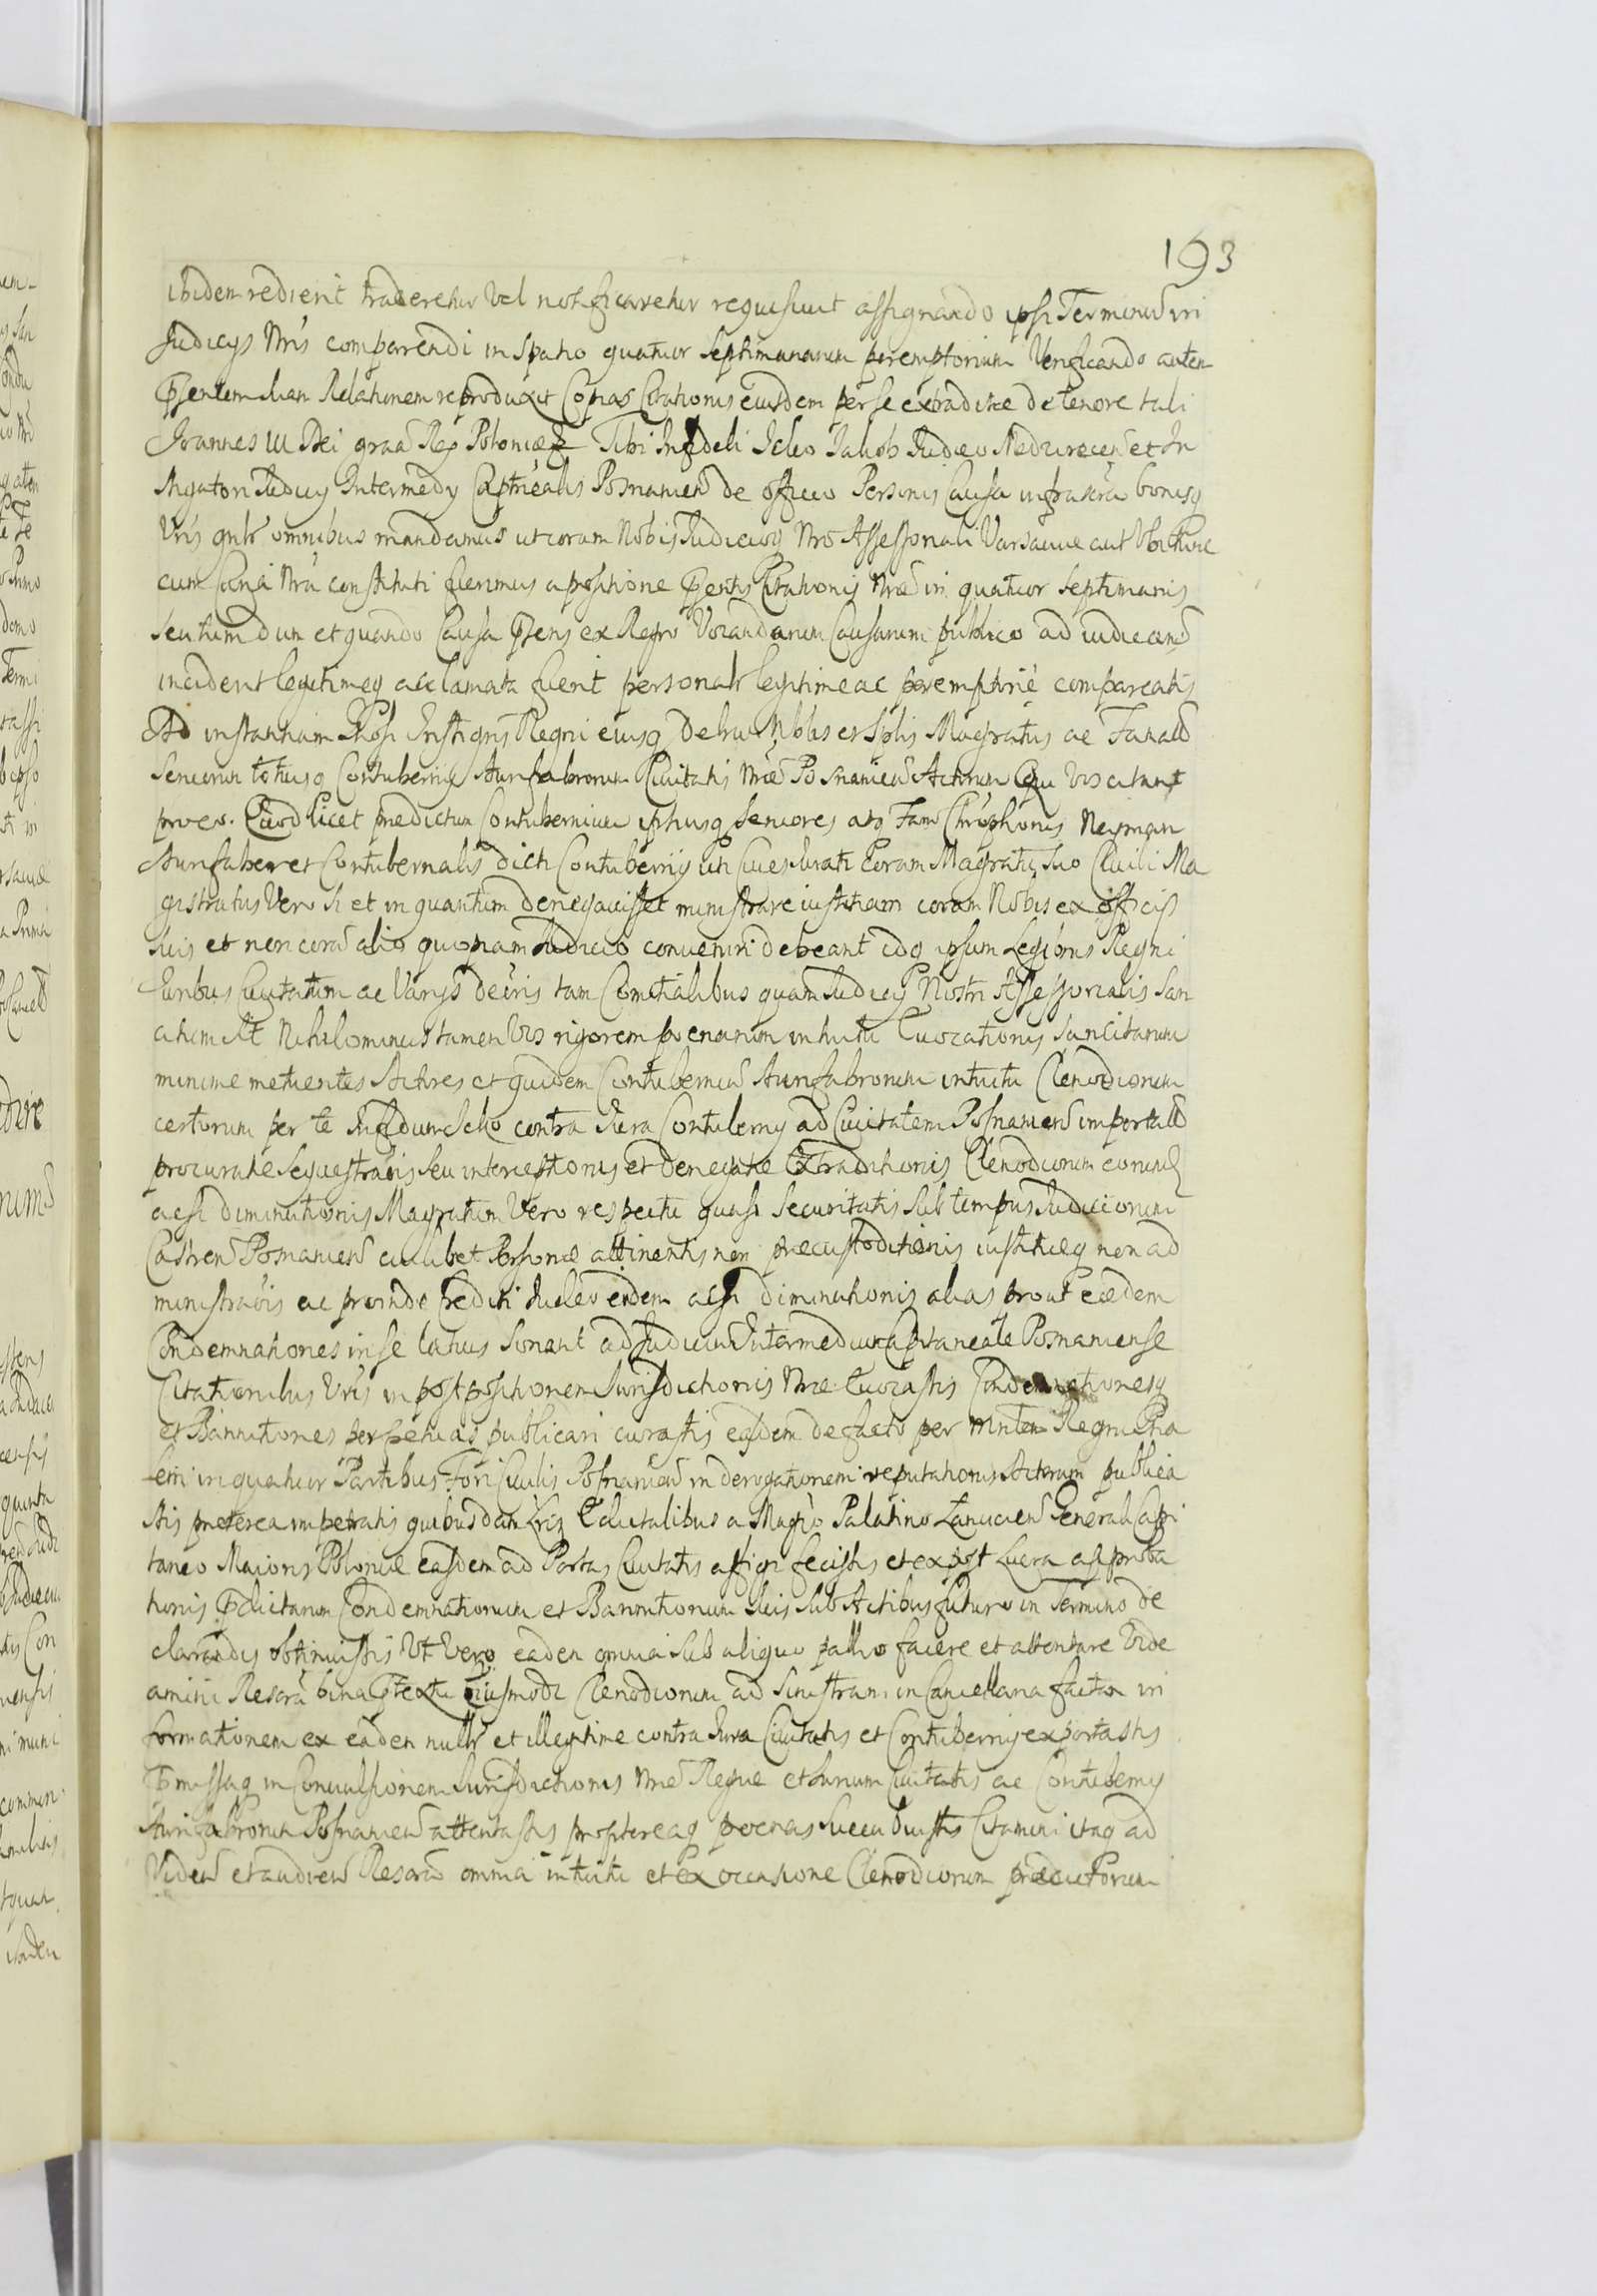 193
ibidem redierit traderetur Vel notificaretur requisivit assignando ipsi Terminũ in
Judicÿs Nr̃is comparendi in Spatio quatuor Septimanarum peremptorium Verificando autem
P̃sentem suam Relationem reproduxit Copias Citationis eiusdem per se extraditae de tenore tali
Joannes III Dei graã Rex Poloniae Tibi Infideli Jcko Jakob Judaeo et In
stigatori Judicÿ Intermedÿ Capitnealis Posnanien̄ de officio Personis Causa infrascra bonisq̃
Vr̃is gnl̃r omnibus mandamus ut coram Nobis Judicioq̃ Nr̃o Assessoriali Varsaviae aut Ubi
cum Curia Nr̃a constituti fuerimus a positione P̃sentis Citationis Nr̃ae in quatuor septimanis
seu tum dum et quando Causa P̃sens ex Regr̃o Vocandarum Causarum publico ad iudicand̃
inciderit legitimeq̃ acclamata fuerit personalr̃ legitime ac peremptoriè compareatis
Ad instantiam Instigris Regni eiusq̃ Delris Nobis et Splis Magratus ac Famatt̃
Seniorum totiusq̃ Contubernÿ Aurifabrorum Civitatis Nr̃ae Posnanien̄ Actorum Qui Vos citant
pro eo. Quod licet predictum Contubernium ipsiusq̃ Seniores atq̃ Fam̃ Chr̃ophorus Neyman
Aurifaber et Contubernalis dicti Contubernÿ uti Cives Jurati Coram Magr̃atu suo Civili Ma
gistratus Vero si et in quantum denegavisset ministrare iustitiam coram Nobis ex officijs
suis et non corã alio quopiam Judicio conveniri debeant idq̃ ipsum Legibus Regni
Juribus Civitatum ac Varÿs decr̃is tam Comitialibus quam Judicÿ Nostri Assessorialis San
citum sit Nihilominus tamen Vos rigorem poenarum intuitu Evocationis Sancitarum
minime metuentes Actores et quidem Contuberniũ Aurifabrorum intuitu Clenodiorum
certorum per te Infidum Jcko contra Jura Contubernÿ ad Civitatem Posnanien̄ importatt̃
procuratae sequestraõis seu interceptionis et denegatae Extraditionis Clenodiorum eorund̃
acsi diminutionis Magratum Vero respectu quasi Securitatis sub tempus Judiciorum
Castren̄ Posnanien̄ cuilibet Personae attinentis non praecustoditionis iustitiaeq̃ non ad
ministraõis ac proinde crediti Judaeo eidem acsi diminutionis alias prout eaedem
Condemnationes in se latius Sonant ad Judicium Intermedium Capitaneale Posnaniense
Citationibus Vr̃is in postpositionem Jurisdictionis Nr̃ae Evocastis Condemnationesq̃
et Bannitiones perpetuas publicari curastis easdem de facto per Mnr̃em Regni
in quatuor Partibus Fori Civilis Posnanien̄ in derogationem reputationis Actorum publica
stis praeterea impetratis quibusdam Lr̃is Edictalibus a Magco Palatino Lancicien̄ Generali Capi
taneo Maioris Poloniae easdem ad Portas Civitatis affigi fecistis et ex post Lucra approba
tionis P̃dictarum Condemnationum et Bannitionum suis sub Actibus futuro in Termino de
clarandis obtinuistis Ut Vero eadem omnia sub aliquo pallio facere et attentare Vide
amini Rescrã bina P̃textu eiusmodi Clenodiorum ad sinistram in Cancellaria factam in
formationem ex eadem nullr̃ et illegitime contra Jura Civitatis et Contubernÿ exportastis
P̃missaq̃ in Convulsionem Jurisdictionis Nr̃ae Regiae et Jurium Civitatis ac Contubernÿ
Aurifabrorum Posnanien̄ attentastis proptereaq̃ poenas Succubuistis Citamini itaq̃ ad
Viden̄ et audien̄ Rescrã omnia intuitu et ex occasione Clenodiorum praedictorum